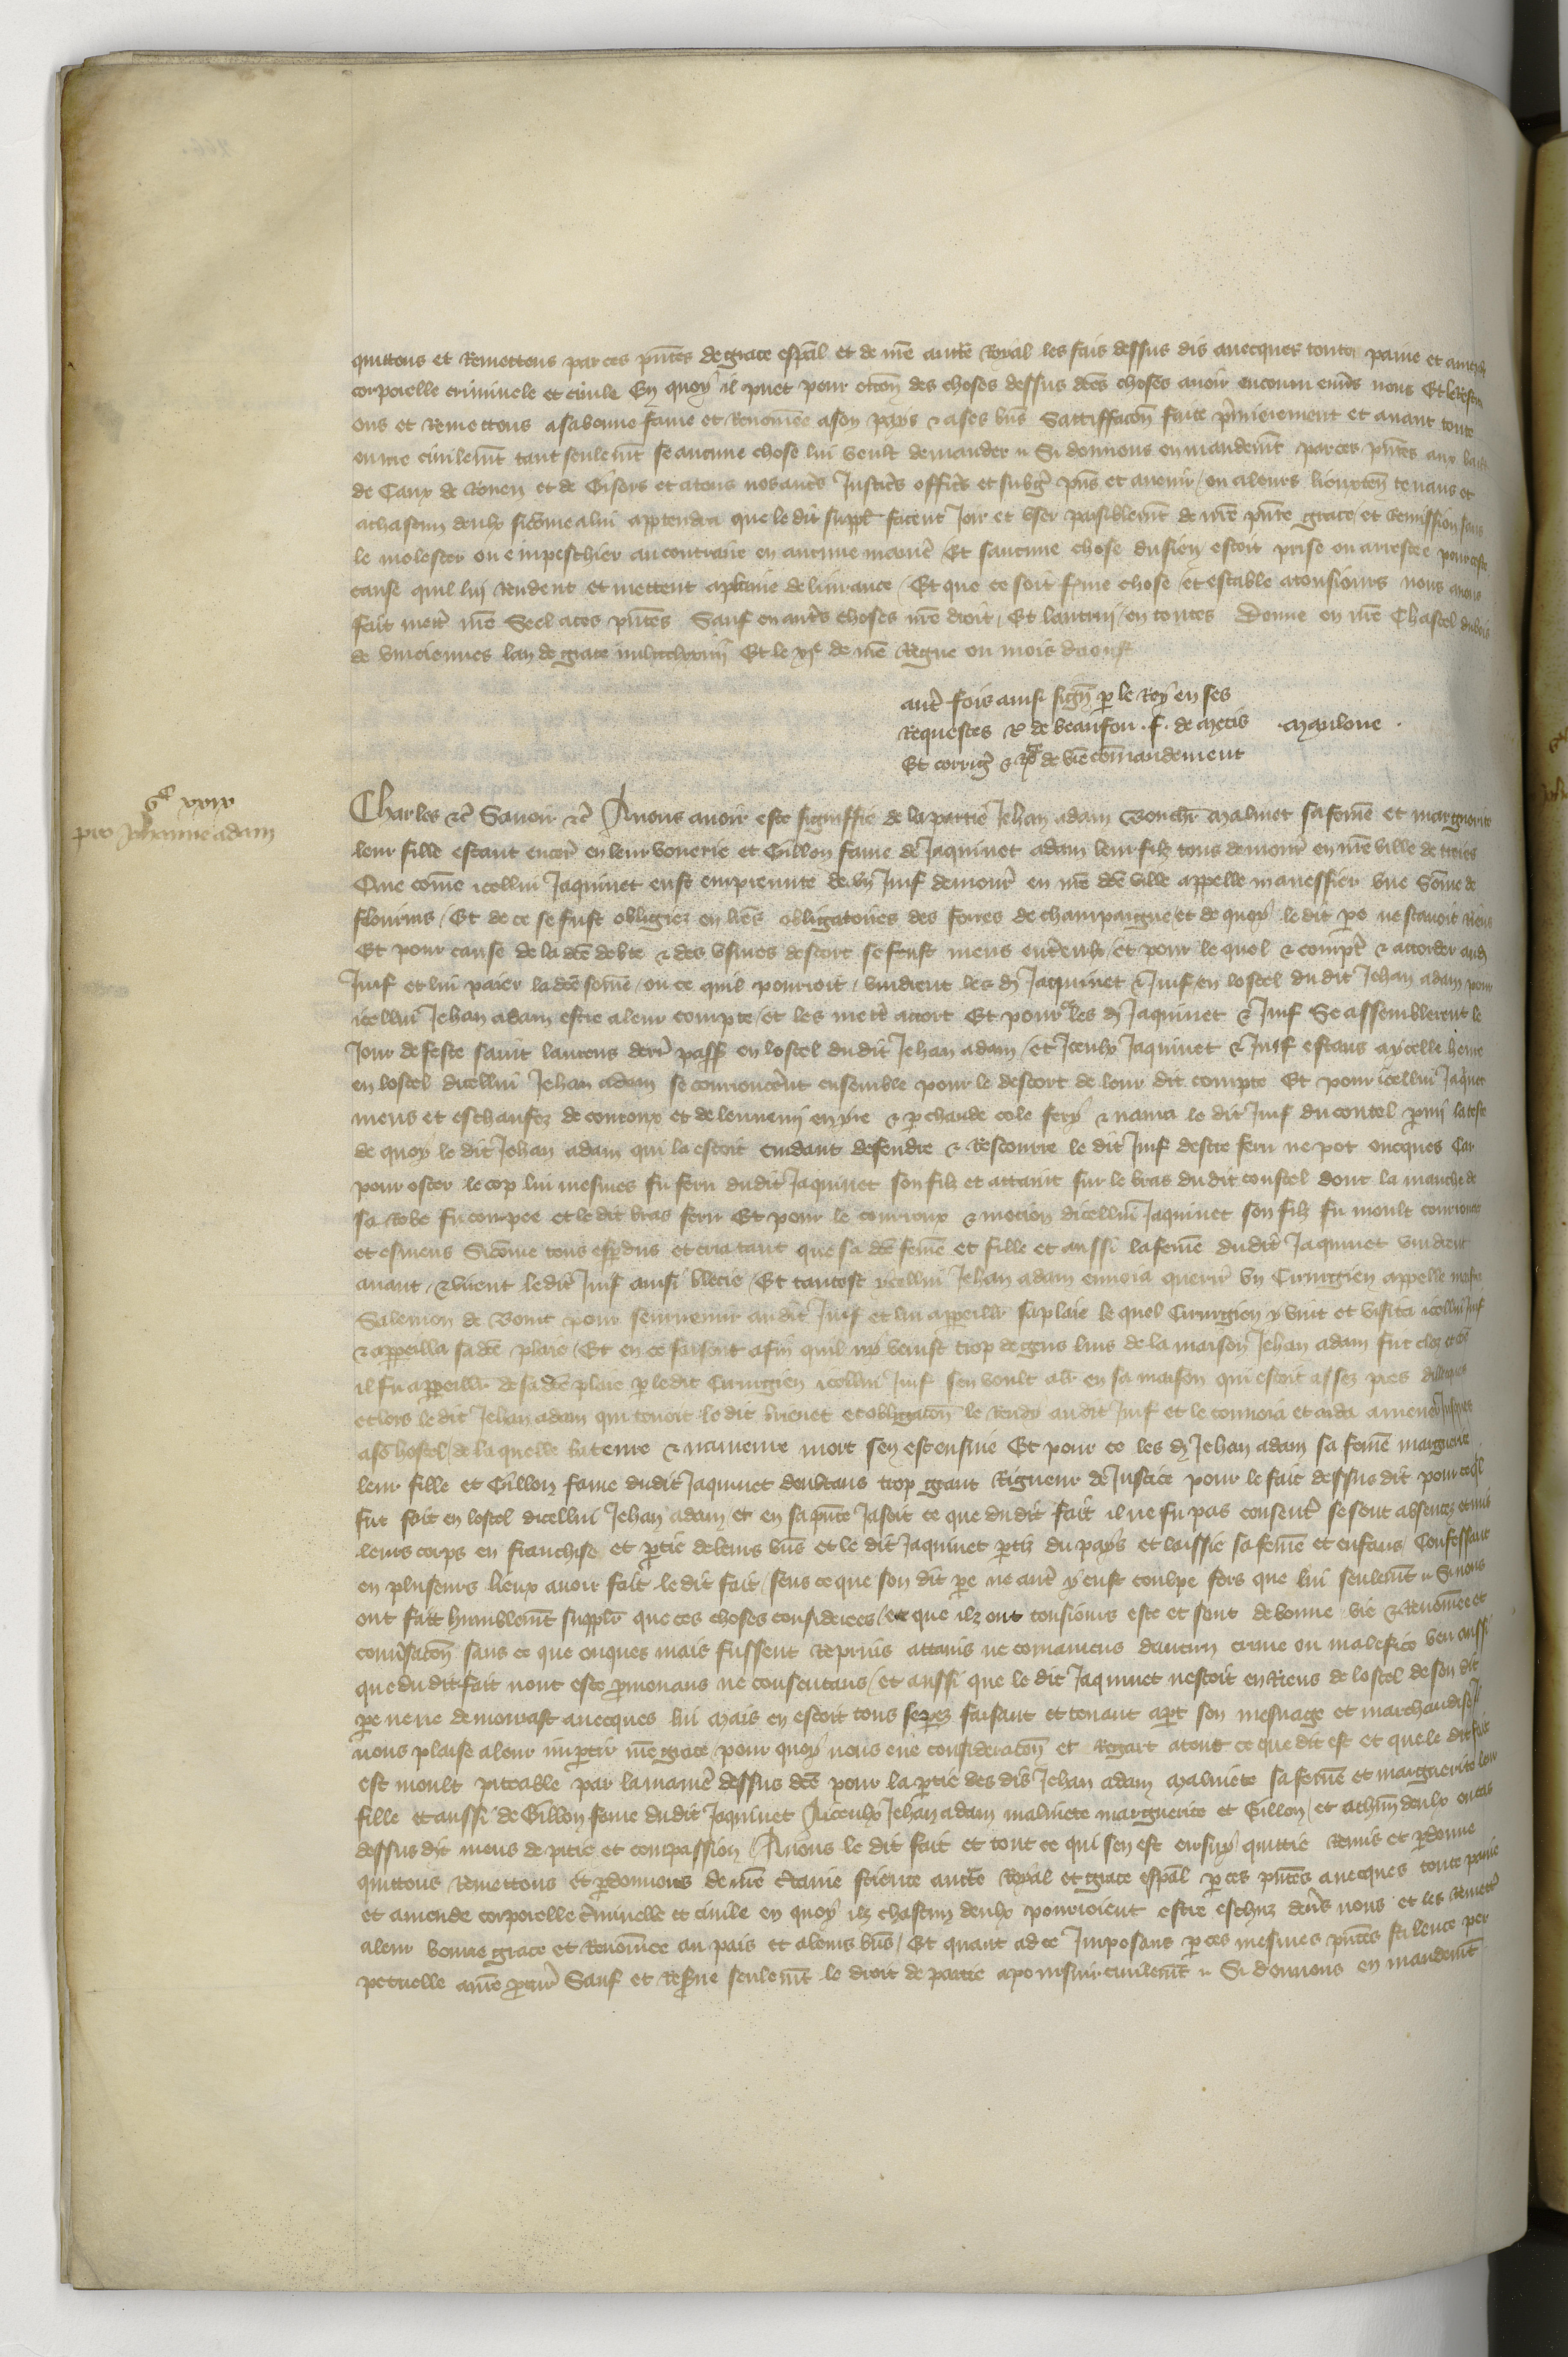 quittons et Remettons par ces pñtes de grace espãl et de nr̃e auctte Royal les fais dessus dis auecques toute paine et amende
corporelle criminele et ciuile En quoy il puet pour occõn des choses dessus dc̃es choses auoir encouru enũs nous Et le Restitu
ons et Remettons a sa bonne fame et Renom̃ee a son pays & a ses bñs Sattiffacõn faite p̃mierement et auant toute
euure ciuilemt̃ tant seulemt̃ se aucune chose lui veult demander Si donnons en mandemt̃ par ces pñtes aux bailliz
de Caux de Rouen et de Gisors et a tous nos autr̃s Justic̃rs offic̃rs et subg̃ pñs et auenir / ou a leurs lieuxteñ tenans et
a chascun deulx sicõme a lui apptendra que le dit suppl̃ facent Joir et vser paisiblemt̃ de nr̃e pñte grace et Remission sans
le molester ou empeschier au contraire en aucune manie᷑ / Et saucune chose du sien estoit prise ou arrestee pour ceste
cause quil lui Rendent et mettent a plaine deliurance / Et que ce soit ferme chose et estable a tousiours nous auons
fait mett̃ nr̃e Seel a ces pñtes Sauf en autr̃s choses nr̃e droit / Et lautrui / en toutes Donne en nr̃e Chastel du bois
de vinciennes lan de grace mil ccc lxxiiij Et le xje de nr̃e Regne ou mois daoust
autr̃ fois ainsi sign̄ p le Roy en ses
Requestes P de beaufou . f . de metis . Manloue .
Et corrig̃ & de vr̃e com̃andement
Gc̃ xxix
pro Johanne adam
Charles &c̃ Sauoir &c̃ A nous auoir este signiffie de la partie Jehan adam Bouch̃r Maluiet sa fem̃e et marguerite
leur fille estant encor̃ en leur vouerie et Gillon fame de Jaquinet adam leur filz tous demour̃ en nr̃e ville de troies
Que cõme icellui Jaquinet eust emprunte de vn Juif demour̃ en nr̃e dc̃e ville appelle manessier vne Som̃e de
flourins / Et de ce se fust obligiez en lr̃es obligatoires des foires de champaigne et de quoy le dit pe ne sauoit Riens
Et pour cause de la dc̃e debte & des vsures descort se feust meus entreulx / et pour le quel & compt̃ & accorder aud̃
Juif et lui paier la dc̃e som̃e / ou ce quil pourroit / vindrent les d̃ Jaquinet & Juif en lostel du dit Jehan adam pour
icellui Jehan adam estre a leur compte / et les mett̃ a acort Et pour ce les d̃ Jaquinet & Juif Se assemblerent le
Jour de feste saint laurens derr̃ pass̃ en lostel du dit Jehan adam / et Iceulx Jaquinet & Juif estans a ycelle heure
en lostel dicellui Jehan adam se courroucer̃nt ensemble pour le descort de leur dit compte Et pour icellui Jaq̃net
meus et eschaufez de courroux et de lennemi en yre & p chaude cole fery & naura le dit Juif du coutel pmi la teste
de quoy le dit Jehan adam qui la estoit cuidant defendre & Rescourre le dit Juif destre feru ne pot oncques Car
pour oster le cop lui mesmes fu feru dudit Jaquinet son filz et attaint sur le bras du dit coustel dont la manche de
sa Robe fu coupee et le dit bras feru Et pour le courroux & mocion dicellui Jaquinet son filz fu moult courroucez
et esmeus Sicõme tous espdus et cria tant que sa dc̃e fem̃e et fille et aussi la fem̃e dudit Jaquinet vindrent
auant & virent le dit Juif ainsi blecie / Et tantost icellui Jehan adam enuoia querir vn Cirurgien appelle maistre
Salemon de pour seruenir audit Juif et lui appareill̃r sa plaie le quel Cirurgien y vint et visita icellui Juif
& appareilla sa dc̃e plaie / Et en ce faisant afin quil ny venist trop de gens luis de la maison Jehan adam fut clos et
il fu appareill̃ de sa dc̃e plaie p le dit Cirurgien icellui Juif sen voult al̃r en sa maison qui estoit assez pres dillecques
et lors le dit Jehan adam qui tenoit le dit brieuet et obligacõn le Rendy audit Juif et le conuoia et aida a mener Jusq̃s
a sõ hostel / de la quelle bateure & naureure mort sen est ensuie Et pour ce les d̃ Jehan adam sa fem̃e marguerite
leur fille et Gillon fame dudit Jaquinet doubtans trop grant Rigueur de Justice pour le fait dessus dit pour ce q̃l
fut fait en lostel dicellui Jehan adam et en sa pñce Ja soit ce que du dit fait il ne fu pas consent̃ se sont absentez et mis
leurs corps en franchise et ptie de leurs bñs et le dit Jaquinet ptiz du pays et laissie sa fem̃e et enfans / Confessant
en pluseurs lieux auoir fait le dit fait / sens ce que son dit pe ne autr̃ y eust coulpe fors que lui seulemt̃ Si nous
ont fait humblemt̃ suppl̃r que ces choses considerees / et que ilz ont tousiours este et sont de bonne vie & Renom̃ee et
conũsacõn sans ce que onques mais fussent Reprins attains ne conuaincus daucun crime ou malefice veu aussi
que du dit fait nont este pmouans ne consentans / et aussi que le dit Jaquinet nestoit en Riens de lostel de son dit
pe ne ne demourast auecques lui Mais en estoit tous sepez faisant et tenant a pt son mesnage et marchandise Il
nous plaise a leur impartir nr̃e grace / pour quoy nous eue consideracõn et Regart a tout ce que dit est et que le dit fait
est moult piteable par la manie᷑ dessus dc̃e pour la ptie des dis Jehan adam Maluiete sa fem̃e et marguerite leur
fille et aussi de Gillon fame dudit Jaquinet A iceulx Jehan adam maluiete marguerite et Gillon / et a chũn deulx ou cas
dessus dit meus de pitie et compassion / Auons le dit fait et tout ce qui sen est ensuy quittie Remis et pdonne
quittons Remettons et pdonnons de nr̃e c̃taine science auctte Royal et grace espãl p ces pñtes auecques toute paine
et amende corporelle c̃minelle et ciuile en quoy ilz chascun deulx pourroient estre escheuz deũs nous et les Remett̃
a leur bonne grace et Renom̃ee au pais et a leurs bñs / Et quant ad ce Imposans p ces mesmes pñtes silence per
petuelle a nr̃e pcur̃ Sauf et Reserue seulemt̃ le droit de partie a poursuir ciuilemt̃ Si donnons en mandemt̃